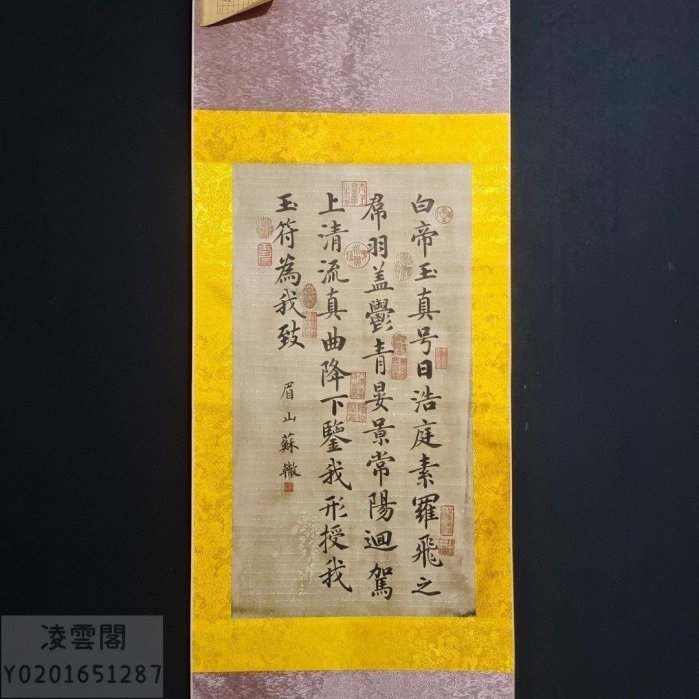 白帝玉真号曰浩庭素羅飛之
帬羽盖鬱青晏景常陽迴駕
上清流真曲降下鑒我形授我
玉符為我致
眉山蘇轍
凌雲閣
Y0201651287